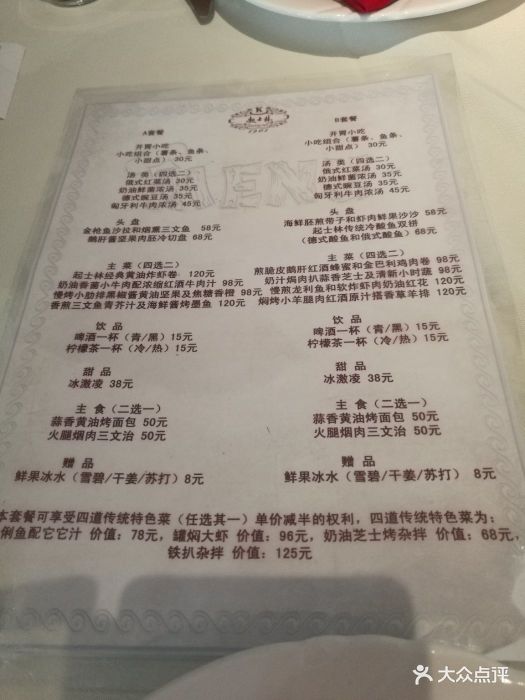 起士林
1901
A套餐
开胃小吃
小吃组合（薯条、鱼条、
小甜点）30元
汤 类（四选二）
俄式红菜汤 30元
奶油鲜菌浓汤 35元
德式豌豆汤 35元
匈牙利牛肉浓汤 45元
头 盘
金枪鱼沙拉和烟熏三文鱼 58元
鹅肝酱坚果肉胚冷切盘 68元
主 菜（四选二）
起士林经典黄油炸虾卷 120元
奶油香菌小牛肉配浓缩红酒牛肉汁 98元
慢烤小肋排黑椒酱黄油坚果及焦糖香橙 98元
香煎三文鱼青芥汁及海鲜酱烤墨鱼 120元
饮 品
啤酒一杯（青/黑）15元
柠檬茶一杯（冷/热）15元
甜 品
冰激凌 38元
主 食（二选一）
蒜香黄油烤面包 50元
火腿烟肉三文治 50元
赠 品
鲜果冰水（雪碧/干姜/苏打） 8元
B套餐
开胃小吃
小吃组合（薯条、鱼条、
小甜点）30元
汤 类（四选二）
俄式红菜汤 30元
奶油鲜菌浓汤 35元
德式豌豆汤 35元
匈牙利牛肉浓汤 45元
头 盘
海鲜胚煎带子和虾肉鲜果沙沙 58元
起士林传统冷酸鱼双拼
（德式酸鱼和俄式酸鱼）68元
主 菜（四选二）
煎脆皮鹅肝红酒蜂蜜和金巴利鸡肉卷 98元
奶汁焗肉扒蒜香芝士及清新小时蔬 98元
慢煎龙利鱼和软炸虾肉奶油红花 120元
焖烤小羊腿肉红酒原汁搭香草羊排 120元
饮 品
啤酒一杯（青/黑）15元
柠檬茶一杯（冷/热）15元
甜 品
冰激凌 38元
主 食（二选一）
蒜香黄油烤面包 50元
火腿烟肉三文治 50元
赠 品
鲜果冰水（雪碧/干姜/苏打） 8元
本套餐可享受四道传统特色菜（任选其一）单价减半的权利，四道传统特色菜为：
俐鱼配它它汁 价值：78元，罐焖大虾 价值：96元，奶油芝士烤杂拌 价值：68元，
铁扒杂拌 价值：125元
大众点评